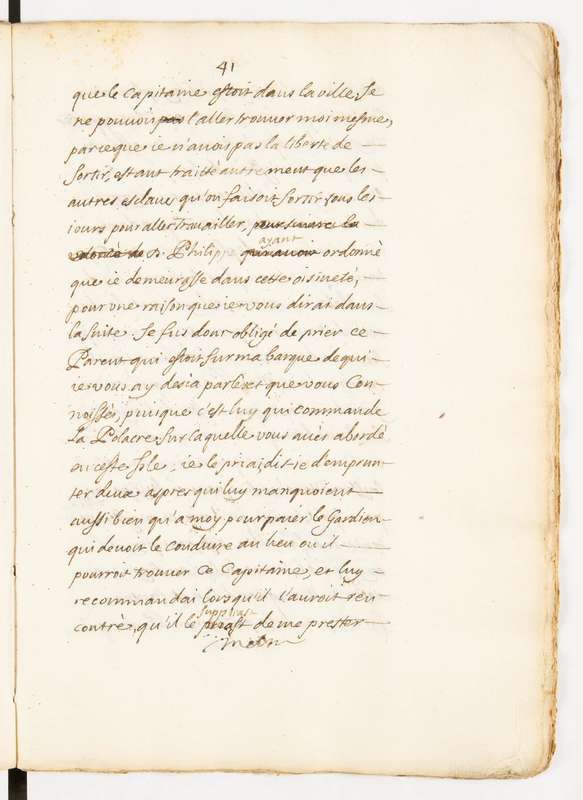 41
que le Capitaine estoit dans la ville, Je
ne pouvois pas l'aller trouver moi mesme,
parceque ie n'avois pas la liberte de
sortir, estant traicté autrement que les
autres esclaves qu'on faisoit sortir tous les
iours pour aller travailler, pour suivre la
de B. Philippe qui avoit ordonné
ayant
que ie demeurasse dans cette oisiveté,
pour une raison que ie vous dirai dans
la suite. Je fus donc obligé de prier ce
Parent qui estoit sur ma barque de qui
ie vous ay desia parlé et que vous Con-
noissés, puisque c'est luy qui commande
la Polacre sur laquelle vous avés abordé
en ceste Isle, ie le priai, dit ie d'emprun-
ter deux aspres qui luy manquoient
aussi bien qu'a moy pour paier le Gardien
qui devoit le conduire au lieu ou il
pourroit trouver ce Capitaine, et luy
recommandai lorsqu'il l'auroit ren-
contré, qu'il le priast de me prester
suppliast